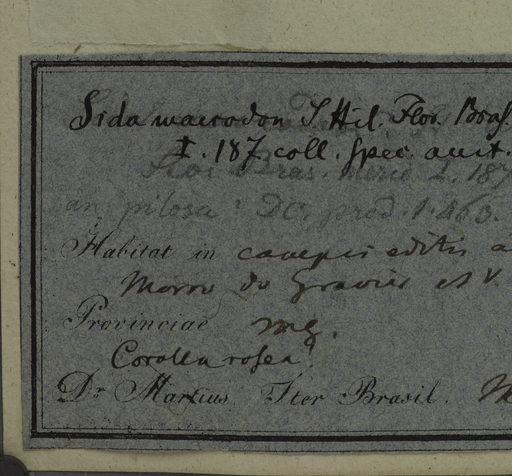 Sida macrodon S. Hil. Flor. Bras.
I. 187. coll. spec. auct.
Flor. Bras. merid. I. 187
an pilosa? DC. prod. 1. 463.
Habitat in campis editis
Morro do Gravier et V.
Provinciae MG.
Corolla rosea!
Dr. Martius Iter Brasil. M